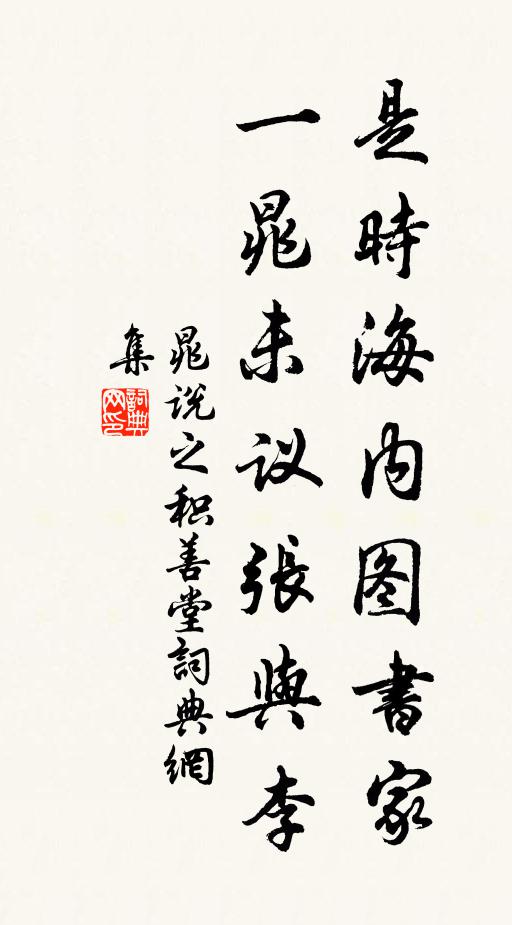 是時海内图書家
一晁未议張與李
晁说之积善堂詞典網
集
詞典网印